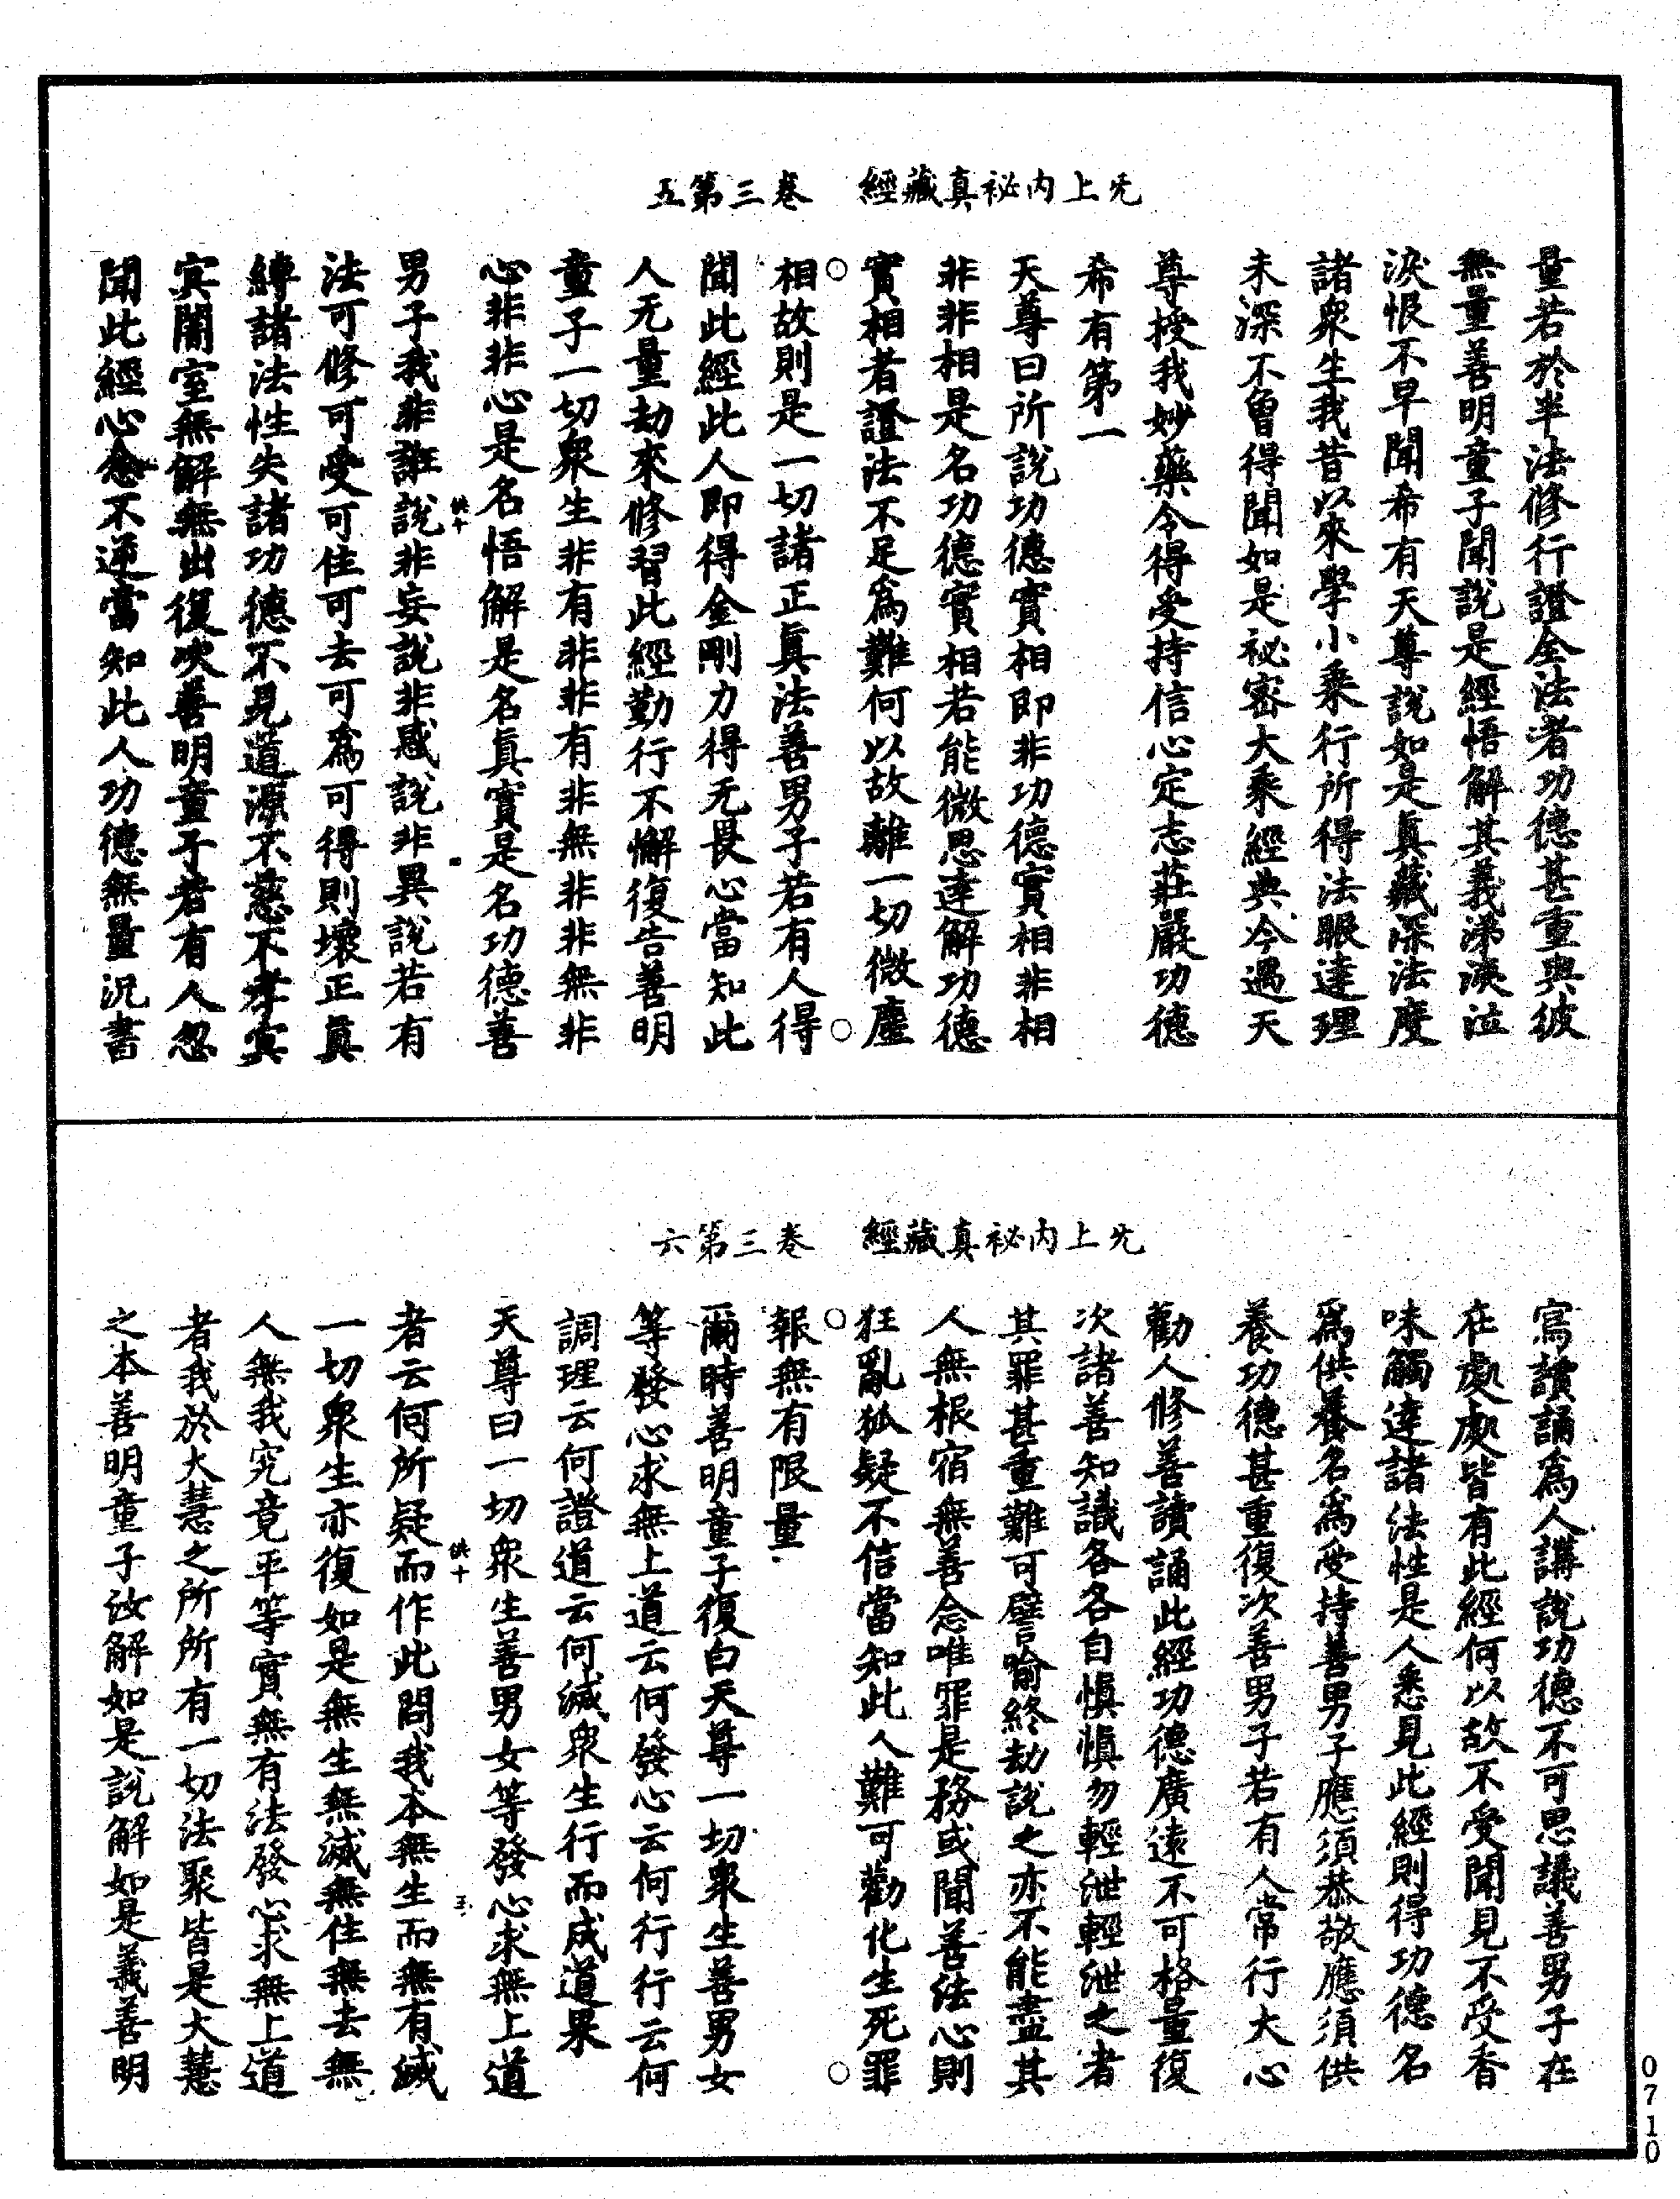 无上內祕真藏經　卷三第五
量若於半法修行證全法者功德甚重與彼
無量善明童子聞說是經悟解其義涕淚泣
淚恨不早聞希有天尊說如是真藏深法度
諸衆生我昔以來學小乘行所得法眼達理
未深不曾得聞如是祕密大乘經典今遇天
尊授我妙藥令得受持信心定志莊嚴功德
希有第一
天尊曰所說功德實相即非功德實相非相
非非相是名功德實相若能微思達解功德
實相者證法不足爲難何以故離一切微塵
相故則是一切諸正眞法善男子若有人得
聞此經此人即得金剛力得无畏心當知此
人无量劫來修習此經勤行不懈復告善明
童子一切衆生非有非非有非無非非無非
心非非心是名悟解是名眞實是名功德善
男子我非誑說非妄說非惑說非異說若有
法可修可受可住可去可爲可得則壞正眞
縛諸法性失諸功德不見道源不慈不孝寘
㝠闇室無解無出復次善明童子若有人忽
聞此經心念不逆當知此人功德無量況書
无上內祕真藏經　卷三第六
寫讀誦爲人講說功德不可思議善男子在
在處處皆有此經何以故不受聞見不受香
味觸達諸法性是人悉見此經則得功德名
爲供養名爲受持善男子應須恭敬應須供
養功德甚重復次善男子若有人常行大心
勸人修善讀誦此經功德廣遠不可格量復
次諸善知識各各自愼愼勿輕泄輕泄之者
其罪甚重難可譬喻終劫說之亦不能盡其
人無根宿無善念唯罪是務或聞善法心則
狂亂狐疑不信當知此人難可勸化生死罪
報無有限量
爾時善明童子復白天尊一切衆生善男女
等發心求無上道云何發心云何行行云何
調理云何證道云何滅衆生行而成道果
天尊曰一切衆生善男女等發心求無上道
者云何所疑而作此問我本無生而無有滅
一切衆生亦復如是無生無滅無住無去無
人無我究竟平等實無有法發心求無上道
者我於大慧之所所有一切法聚皆是大慧
之本善明童子汝解如是說解如是義善明
0710